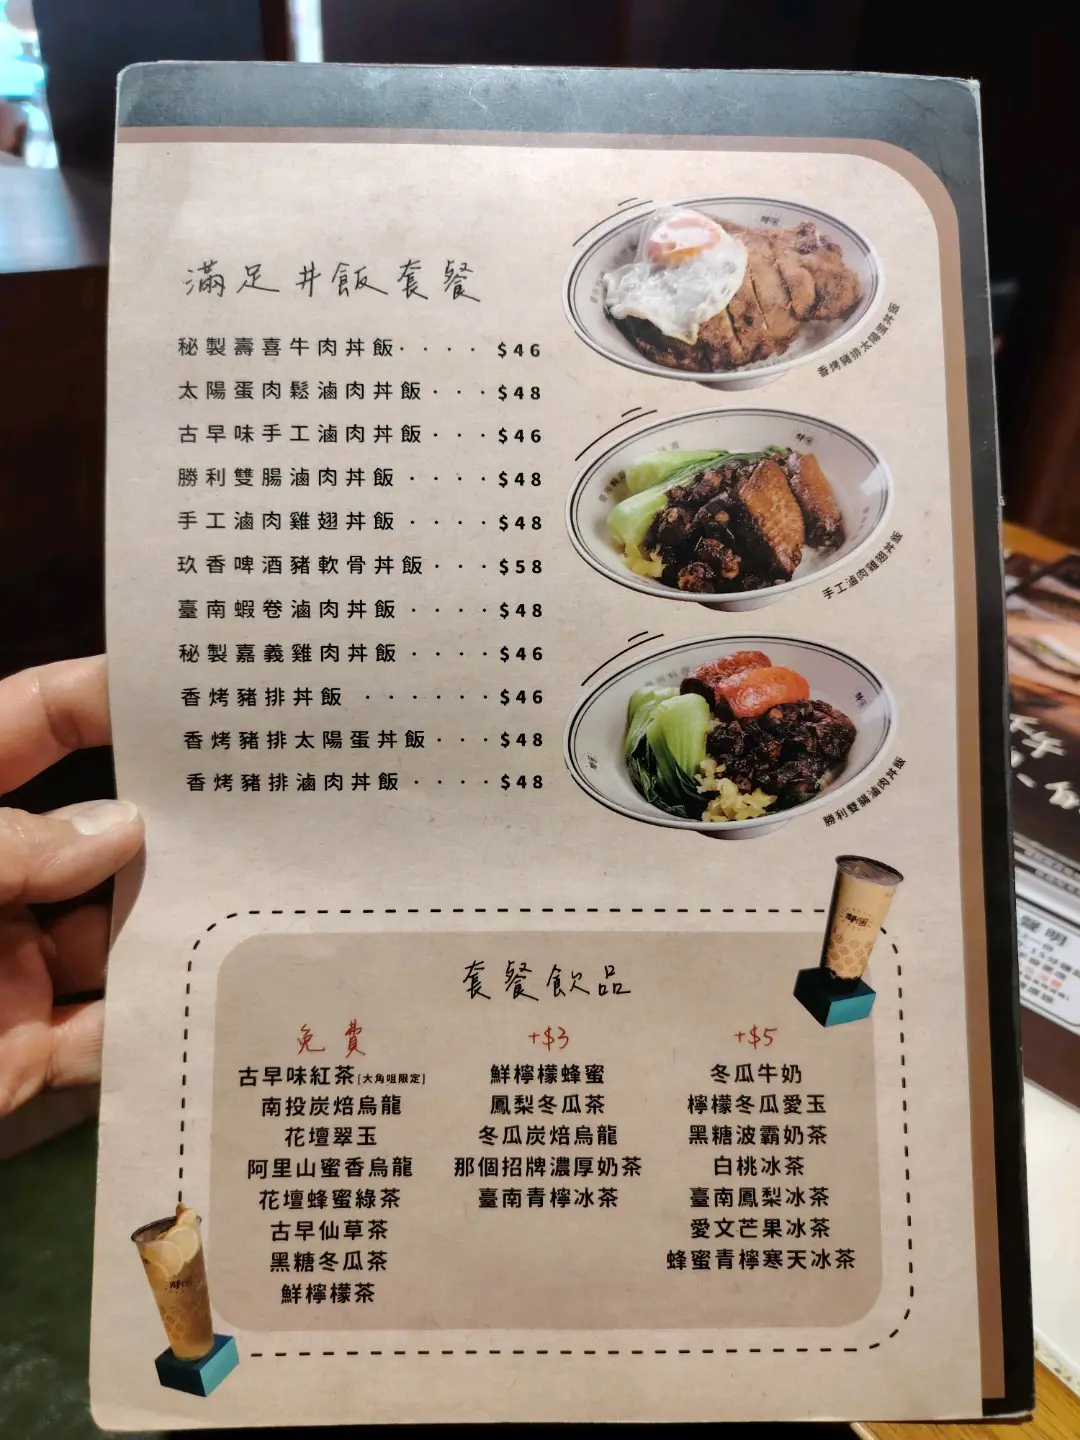 滿足丼飯套餐
秘製壽喜牛肉丼飯････$46
太陽蛋肉鬆滷肉丼飯･･･$48
古早味手工滷肉丼飯･･･$46
勝利雙腸滷肉丼飯････$48
手工滷肉雞翅丼飯････$48
玖香啤酒豬軟骨丼飯･･･$58
臺南蝦卷滷肉丼飯････$48
秘製嘉義雞肉丼飯････$46
香烤豬排丼飯･･････$46
香烤豬排太陽蛋丼飯･･･$48
香烤豬排滷肉丼飯････$48
香烤豬排太陽蛋丼飯
手工滷肉雞翅丼飯
勝利雙腸滷肉丼飯
套餐飲品
免費
古早味紅茶[大角咀限定]
南投炭焙烏龍
花壇翠玉
阿里山蜜香烏龍
花壇蜂蜜綠茶
古早仙草茶
黑糖冬瓜茶
鮮檸檬茶
+$3
鮮檸檬蜂蜜
鳳梨冬瓜茶
冬瓜炭焙烏龍
那個招牌濃厚奶茶
臺南青檸冰茶
+$5
冬瓜牛奶
檸檬冬瓜愛玉
黑糖波霸奶茶
白桃冰茶
臺南鳳梨冰茶
愛文芒果冰茶
蜂蜜青檸寒天冰茶
聲明